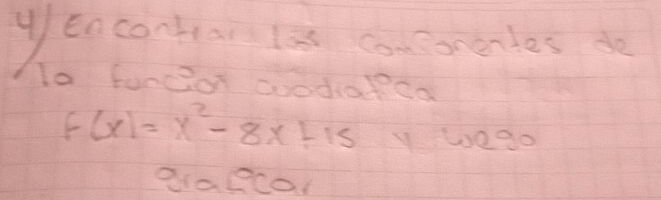 4) Encontrar los componentes de
la función cuadratica
F(x) = x² - 8x + 15 y luego
graficar